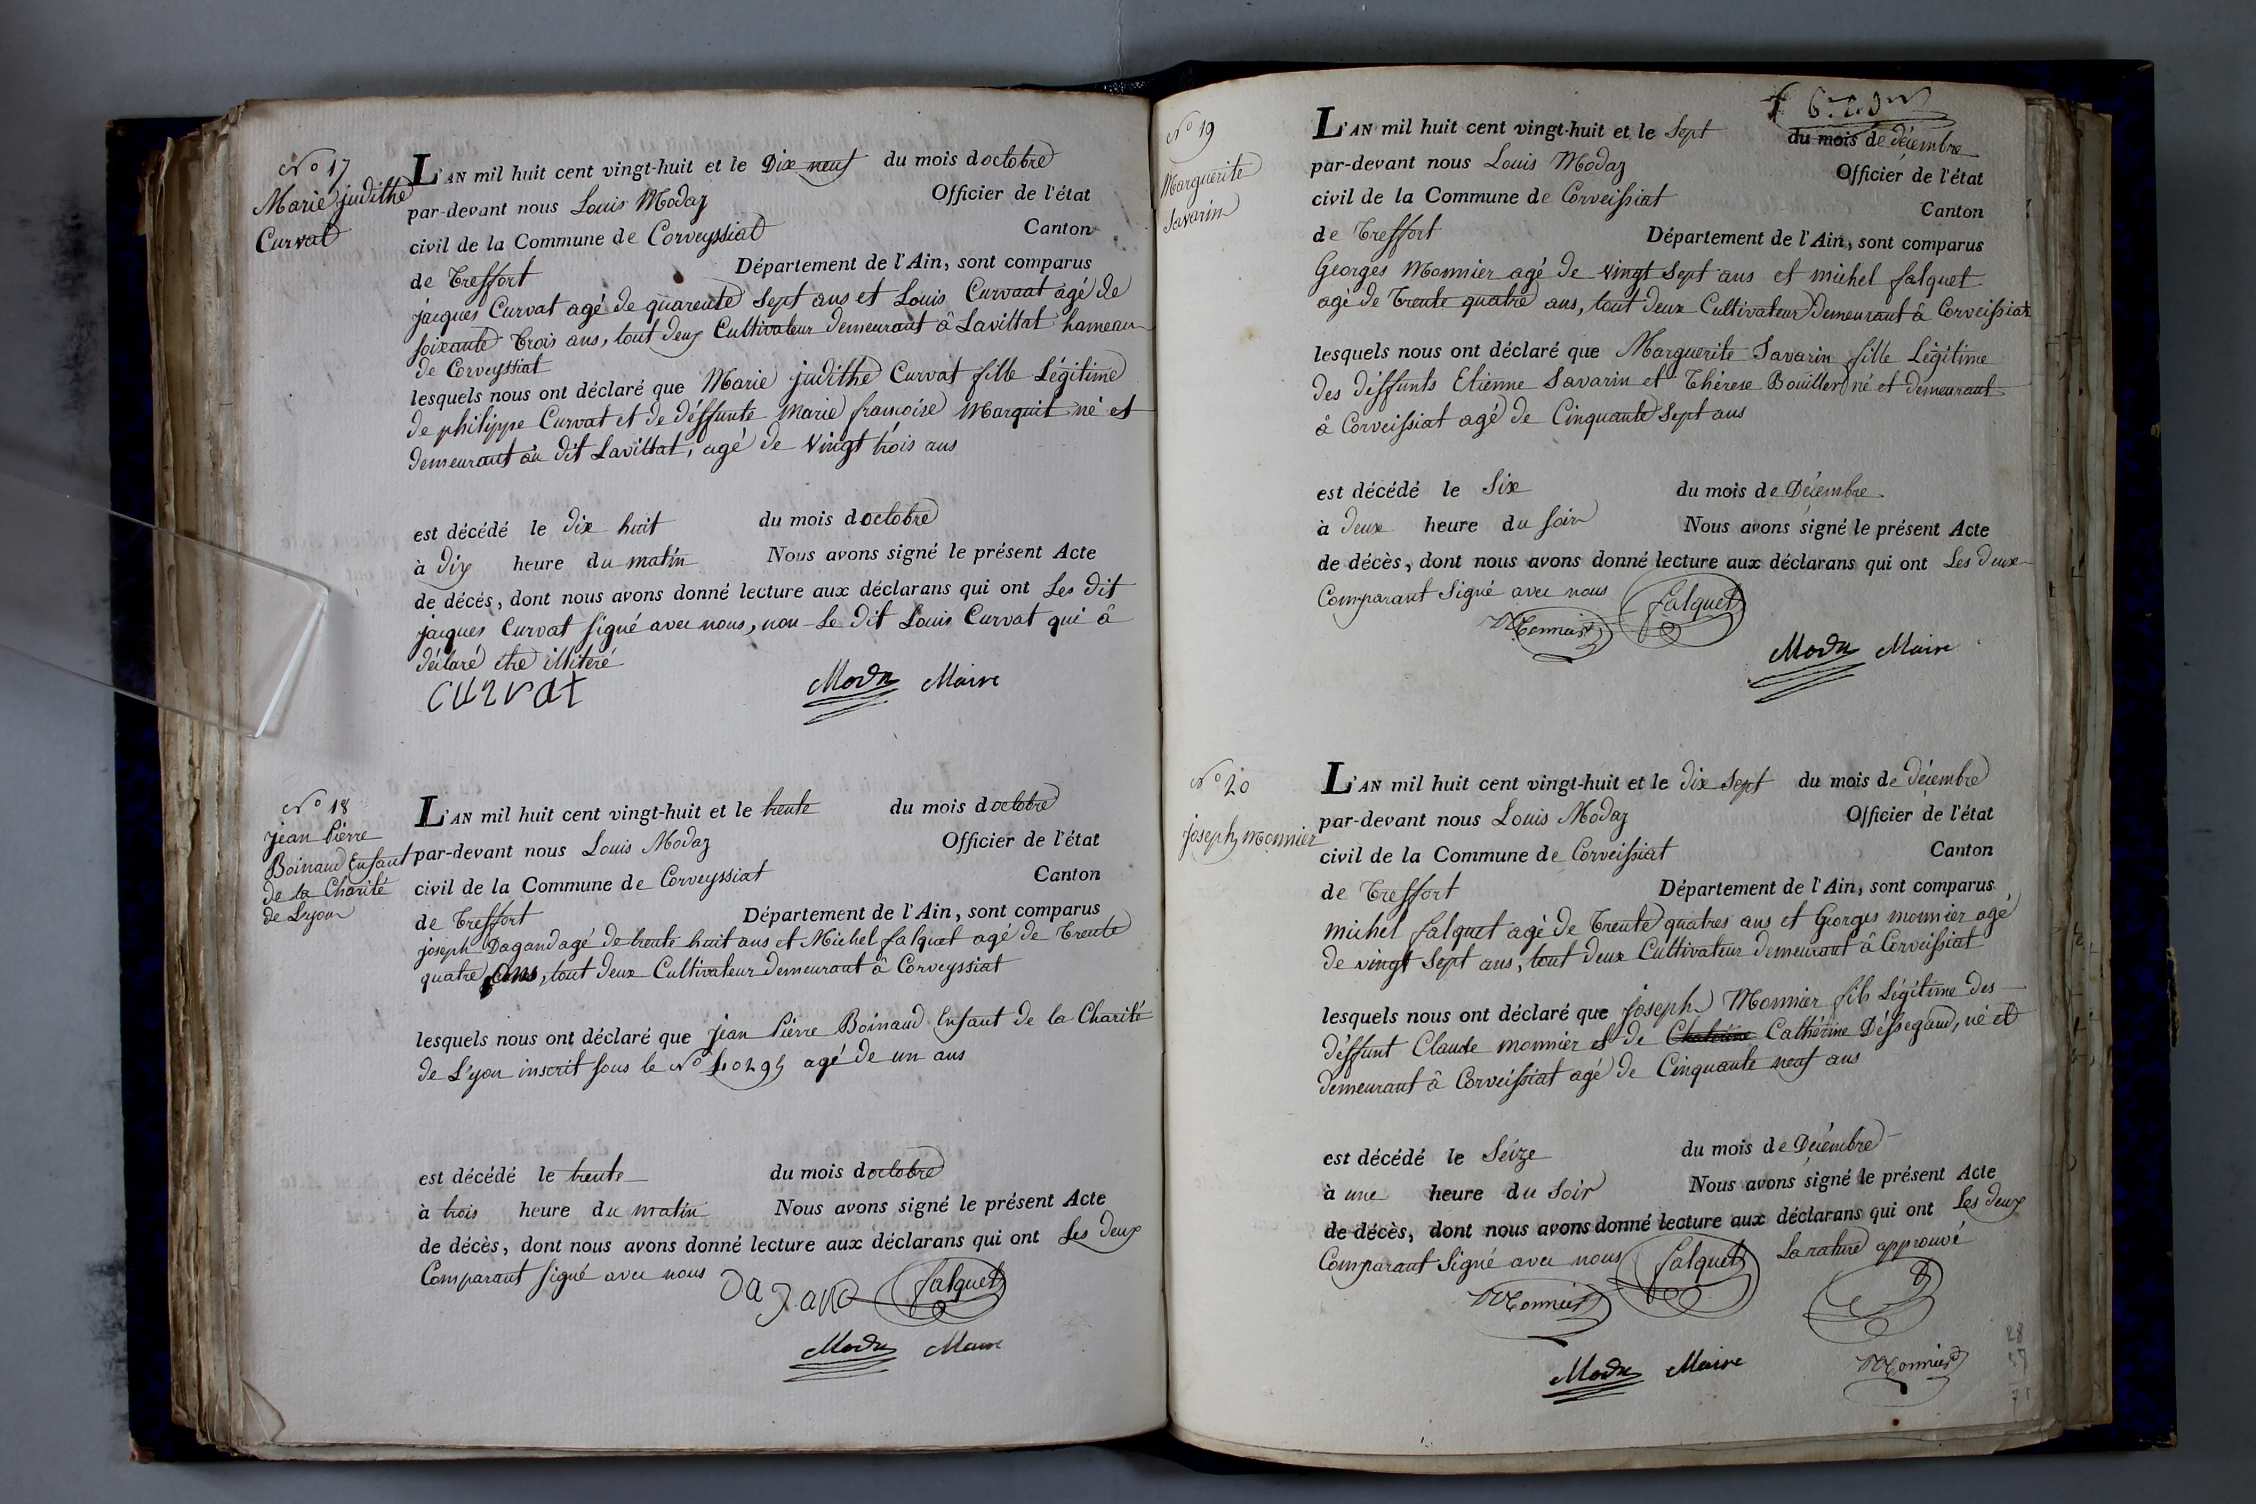 No 17
Marie judithe
Curvat
L'AN mil huit cent vingt-huit et le Dix neuf du mois doctobre
par-devant nous Louis Modaz Officier de l'état
civil de la Commune de Corveyssiat Canton
de Treffort Département de l'Ain, sont comparus
jacques Curvat agé de quarente Sept ans et Louis Curvaat agé de
soixante Trois ans, tout deux Cultivateur demeurant â Lavillat hameau
de Corveyssiat
lesquels nous ont déclaré que Marie judithe Curvat fille Légitime
de philippe Curvat et de déffunte Marie francoise Marquit né et
demeurant au dit Lavillat, agé de Vingt trois ans
est décédé le dix huit du mois doctobre
à dix heure du matin Nous avons signé le présent Acte
de décés, dont nous avons donné lecture aux déclarans qui ont Les dit
jacques Curvat signé avec nous, non Le dit Louis Curvat qui â
déclaré etre illiteré
curvat Modaz Maire
No 18
jean Pierre
Boinaud Enfant
de la Charité
de Lyon
L'AN mil huit cent vingt-huit et le trente du mois doctobre
par-devant nous Louis Modaz Officier de l'état
civil de la Commune de Corveyssiat Canton
de Treffort Département de l'Ain, sont comparus
joseph Dagand agé de trente huit ans et Michel falquet agé de Trente
quatre ans, tout deux Cultivateur demeurant â Corveyssiat
lesquels nous ont déclaré que jean Pierre Boinaud Enfant de la Charité
de Lyon inscrit sous le No agé de un ans
est décédé le trente du mois doctobre
à trois heure du matin Nous avons signé le présent Acte
de décès, dont nous avons donné lecture aux déclarans qui ont Les deux
Comparant signé avec nous falquet
Modaz Maire
No 19
Marguerite
Savarin
L'AN mil huit cent vingt-huit et le Sept du mois de décembre
par-devant nous Louis Modaz Officier de l'état
civil de la Commune de Corveissiat Canton
de Treffort Département de l'Ain, sont comparus
Georges Monnier agé de vingt Sept ans et michel falquet
agé de Trente quatre ans, tout deux Cultivateur demeurant â Corveissiat
lesquels nous ont déclaré que Marguerite Savarin fille Légitime
des déffunts Etienne Savarin et Thérese Bouiller né et demeurant
â Corveissiat agé de Cinquante Sept ans
est décédé le Six du mois de Décembre
à deux heure du soir Nous avons signé le présent Acte
de décès, dont nous avons donné lecture aux déclarans qui ont Les deux
Comparant Signé avec nous falquet
Monnier
Modaz Maire
No 20
joseph monnier
L'AN mil huit cent vingt-huit et le dix Sept du mois de décembre
par-devant nous Louis Modaz Officier de l'état
civil de la Commune de Corveissiat Canton
de Treffort Département de l'Ain, sont comparus
michel falquet agé de Trente quatres ans et Georges monnier agé
de vingt Sept ans, tout deux Cultivateur demeurant â Corveissiat
lesquels nous ont déclaré que joseph Monnier fils Légitime des
déffunt Claude monnier et de Cathérine Déssegaud, né et
demeurant â Corveissiat agé de Cinquante neuf ans
est décédé le Seize du mois de Décembre
à une heure du Soir Nous avons signé le présent Acte
de décès, dont nous avons donné lecture aux déclarans qui ont Les deux
Comparant Signé avec nous falquet La rature approuvé
Monnier
Modaz Maire Monnier